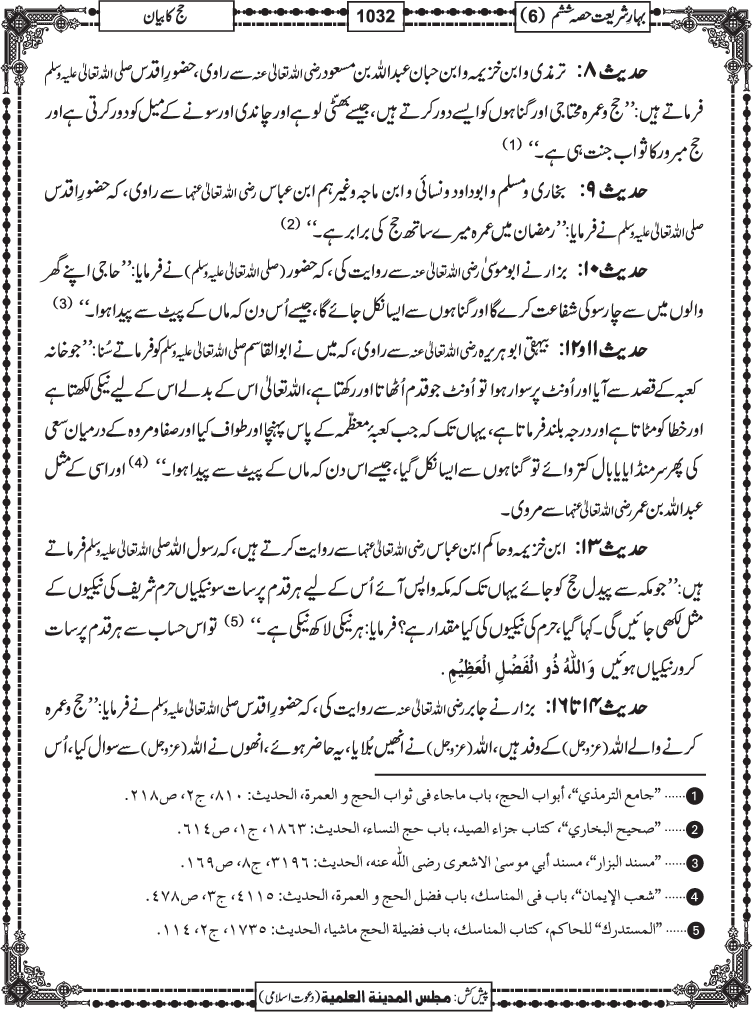 بہارِ شریعت حصہ ششم (6)
1032
حج کا بیان
حدیث ۸: ترمذی و ابن خزیمہ و ابن حبان عبداللہ بن مسعود رضی اللہ تعالیٰ عنہ سے راوی، حضورِ اقدس صلی اللہ تعالیٰ علیہ وسلم
فرماتے ہیں: ’’حج و عمرہ محتاجی اور گناہوں کو ایسے دور کرتے ہیں، جیسے بھٹّی لوہے اور چاندی اور سونے کے میل کو دور کرتی ہے اور
حج مبرور کا ثواب جنت ہی ہے۔‘‘ (1)
حدیث ۹: بخاری و مسلم و ابوداود و نسائی و ابن ماجہ وغیرہم ابن عباس رضی اللہ تعالیٰ عنہما سے راوی، کہ حضورِ اقدس
صلی اللہ تعالیٰ علیہ وسلم نے فرمایا: ’’رمضان میں عمرہ میرے ساتھ حج کی برابر ہے۔‘‘ (2)
حدیث ۱۰: بزار نے ابو موسیٰ رضی اللہ تعالیٰ عنہ سے روایت کی، کہ حضور (صلی اللہ تعالیٰ علیہ وسلم) نے فرمایا: ’’حاجی اپنے گھر
والوں میں سے چار سو کی شفاعت کرے گا اور گناہوں سے ایسا نکل جائے گا، جیسے اُس دن کہ ماں کے پیٹ سے پیدا ہوا۔‘‘ (3)
حدیث ۱۱ و ۱۲: بیہقی ابو ہریرہ رضی اللہ تعالیٰ عنہ سے راوی، کہ میں نے ابو القاسم صلی اللہ تعالیٰ علیہ وسلم کو فرماتے سُنا: ’’جو خانہ
کعبہ کے قصد سے آیا اور اُونٹ پر سوار ہوا تو اُونٹ جو قدم اُٹھاتا اور رکھتا ہے، اللہ تعالیٰ اس کے بدلے اس کے لیے نیکی لکھتا ہے
اور خطا کو مٹاتا ہے اور درجہ بلند فرماتا ہے، یہاں تک کہ جب کعبۂ معظّمہ کے پاس پہنچا اور طواف کیا اور صفا و مروہ کے درمیان سعی
کی پھر سر منڈایا یا بال کتروائے تو گناہوں سے ایسا نکل گیا، جیسے اس دن کہ ماں کے پیٹ سے پیدا ہوا۔‘‘ (4) اور اسی کے مثل
عبداللہ بن عمر رضی اللہ تعالیٰ عنہما سے مروی۔
حدیث ۱۳: ابن خزیمہ و حاکم ابن عباس رضی اللہ تعالیٰ عنہما سے روایت کرتے ہیں، کہ رسول اللہ صلی اللہ تعالیٰ علیہ وسلم فرماتے
ہیں: ’’جو مکہ سے پیدل حج کو جائے یہاں تک کہ مکہ واپس آئے اُس کے لیے ہر قدم پر سات سو نیکیاں حرم شریف کی نیکیوں کے
مثل لکھی جائیں گی۔ کہا گیا، حرم کی نیکیوں کی کیا مقدار ہے؟ فرمایا: ہر نیکی لاکھ نیکی ہے۔‘‘ (5) تو اس حساب سے ہر قدم پر سات
کرور نیکیاں ہوئیں وَاللّٰهُ ذُو الْفَضْلِ الْعَظِيْمِ .
حدیث ۱۴ تا ۱۶: بزار نے جابر رضی اللہ تعالیٰ عنہ سے روایت کی، کہ حضورِ اقدس صلی اللہ تعالیٰ علیہ وسلم نے فرمایا: ’’حج و عمرہ
کرنے والے اللہ (عزوجل) کے وفد ہیں، اللہ (عزوجل) نے انھیں بُلایا، یہ حاضر ہوئے، انھوں نے اللہ (عزوجل) سے سوال کیا، اُس
1 ...... ”جامع الترمذي“، أبواب الحج، باب ماجاء فی ثواب الحج و العمرة، الحديث: ٨١٠، ج٢، ص٢١٨.
2 ...... ”صحيح البخاري“، كتاب جزاء الصيد، باب حج النساء، الحديث: ١٨٦٣، ج١، ص٦١٤.
3 ...... ”مسند البزار“، مسند أبي موسىٰ الاشعری رضی اللّٰه عنه، الحديث: ٣١٩٦، ج٨، ص١٦٩.
4 ...... ”شعب الإيمان“، باب فی المناسك، باب فضل الحج و العمرة، الحديث: ٤١١٥، ج٣، ص٤٧٨.
5 ...... ”المستدرك“ للحاكم، كتاب المناسك، باب فضيلة الحج ماشيا، الحديث: ١٧٣٥، ج٢، ١١٤.
پیش کش: مجلس المدينة العلمية (دعوت اسلامی)